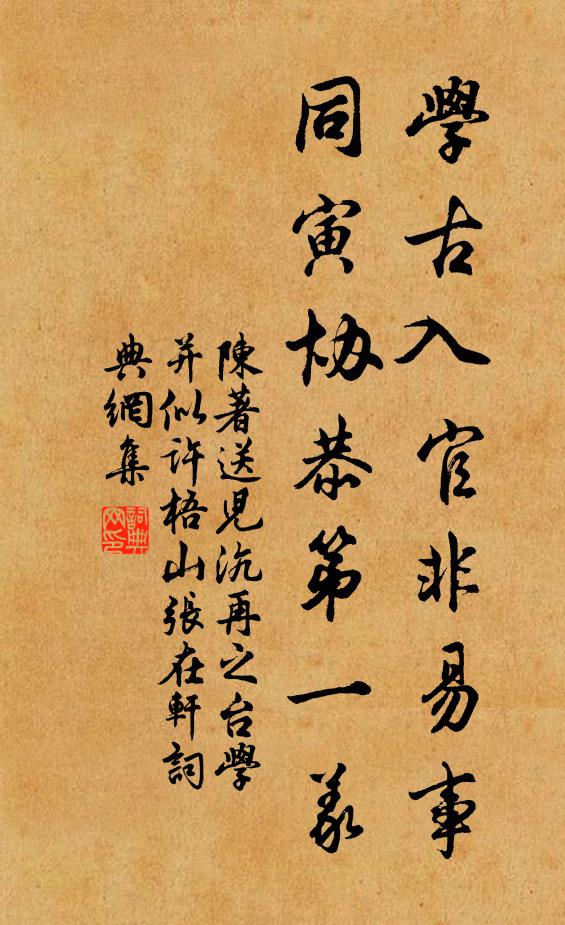 學古入官非易事
同寅協恭第一義
陳著送兒沆再之台學
并似許梧山張在軒詞
典網集
詞典網印